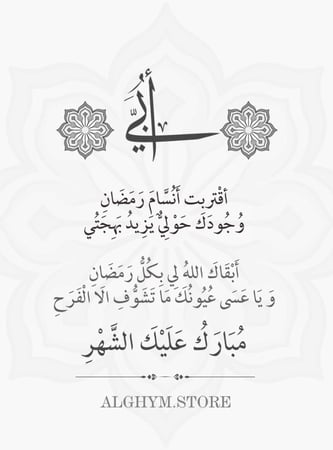 أُبَيّ
أقْتربت أَنْسَّامَ رَمَضَانِ
وُجُودَكَ حَوْلِيٌّ يَزِيدُ بَهِجَتُي
أَبْقَاكَ اللهُ لِي بِكُلُّ رَمَضَانِ
وَ يَا عَسَى عُيُونُكَ مَا تَشَوُّفِ الَا الْفَرَحِ
مُبَارَكُ عَلَيْكَ الشَّهْرِ
ALGHYM.STORE